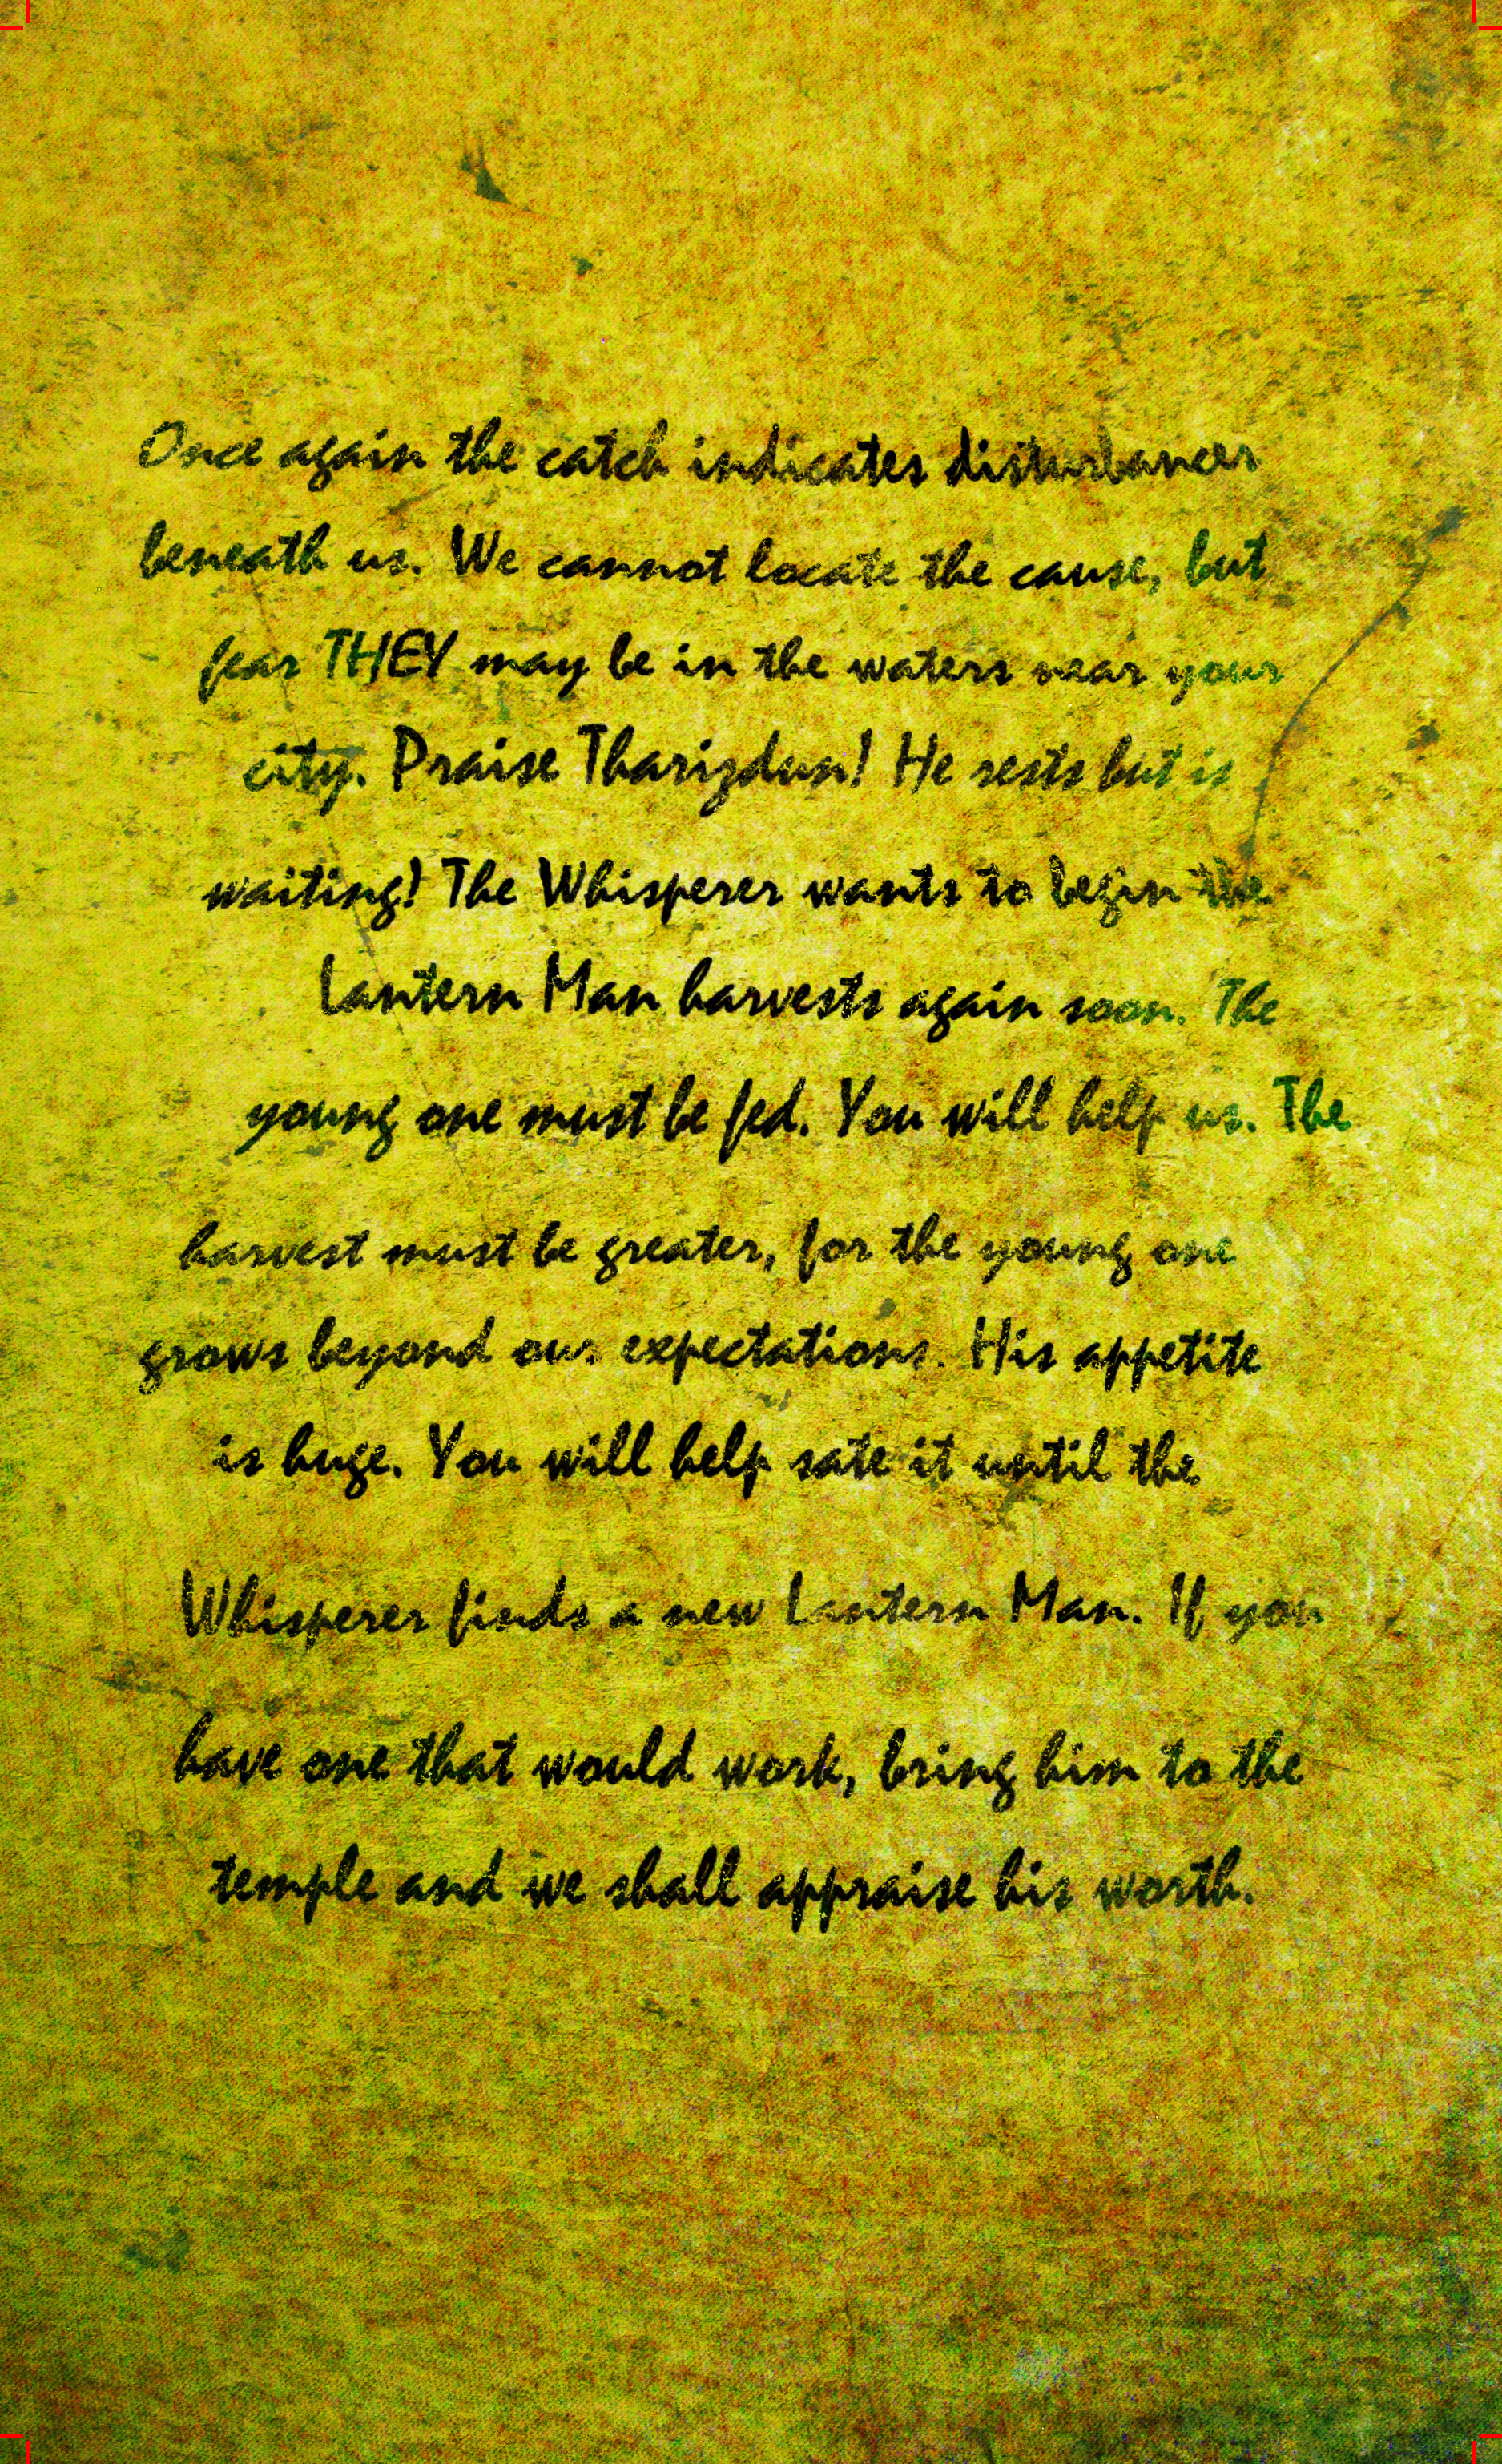 Once again the catch indicates disturbances
beneath us. We cannot locate the cause, but
fear THEY may be in the waters near your
city. Praise Tharizdun! He rests but is
waiting! The Whisperer wants to begin the
Lantern Man harvests again soon. The
young one must be fed. You will help us. The
harvest must be greater, for the young one
grows beyond our expectations. His appetite
is huge. You will help sate it until the
Whisperer finds a new Lantern Man. If you
have one that would work, bring him to the
temple and we shall appraise his worth.